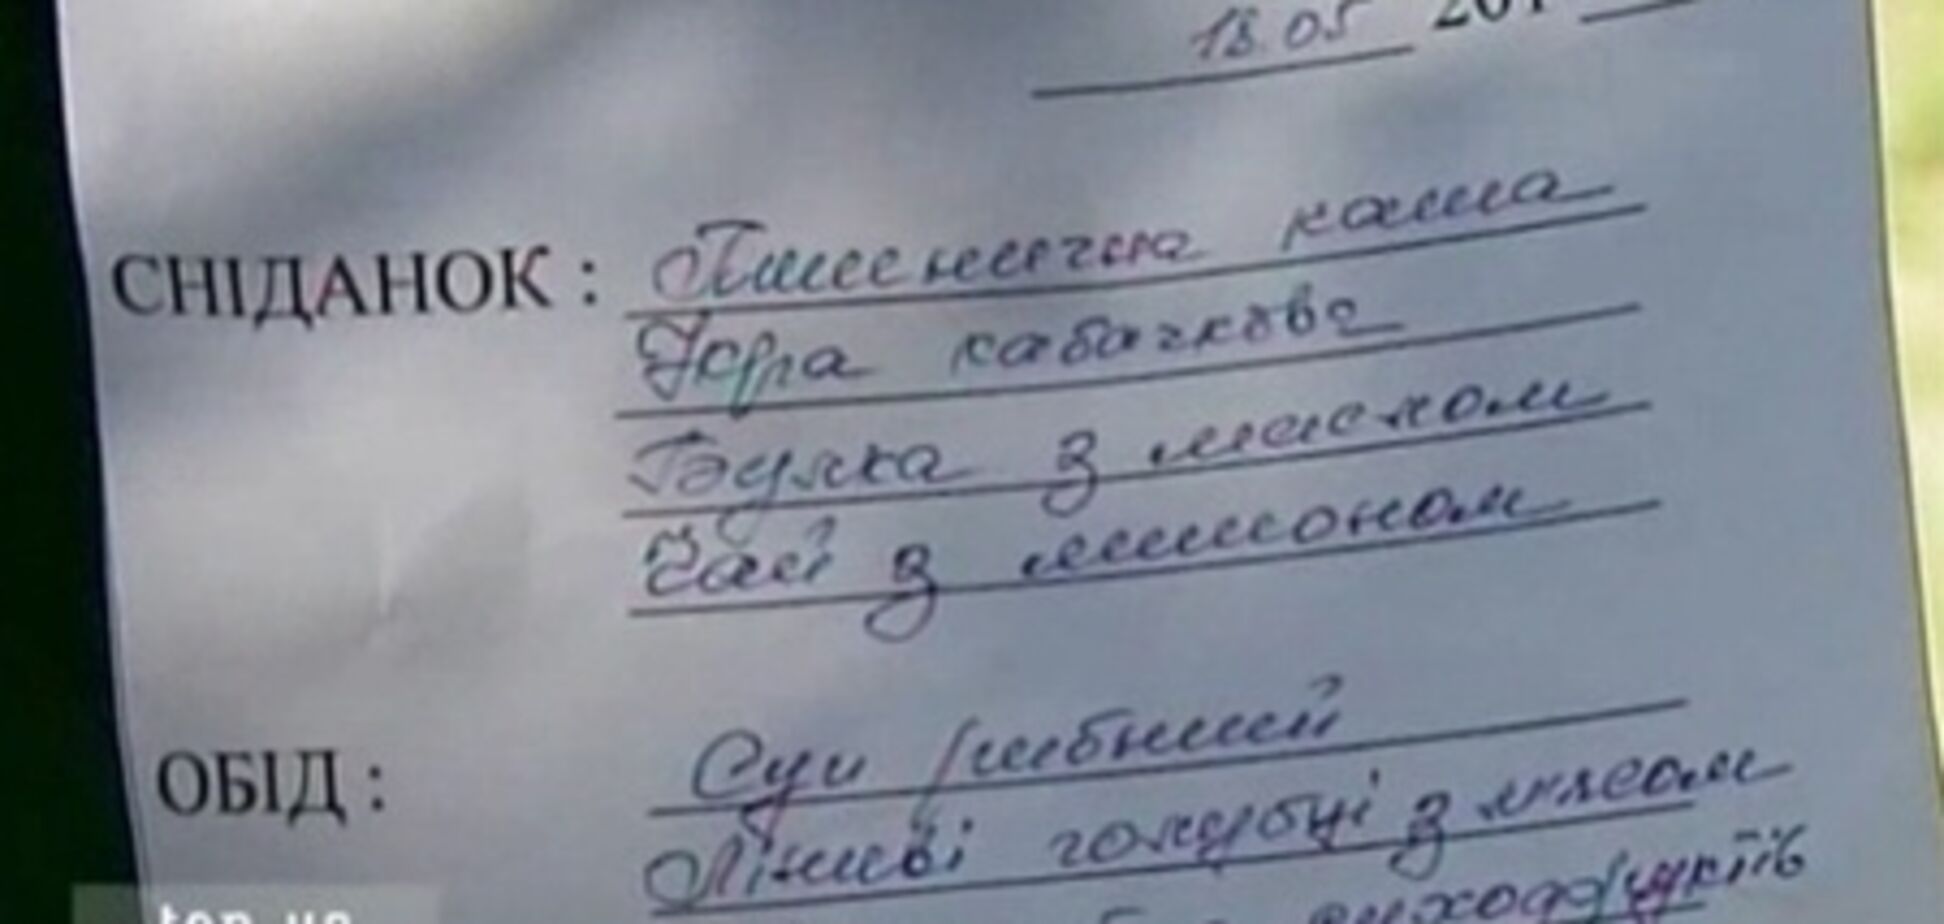 18.05 201
СНІДАНОК : Пшенична каша
Ікра кабачкова
Булка з маслом
Чай з лимоном
ОБІД : Суп рибний
Ліниві голубці з мясом
сухофруктів